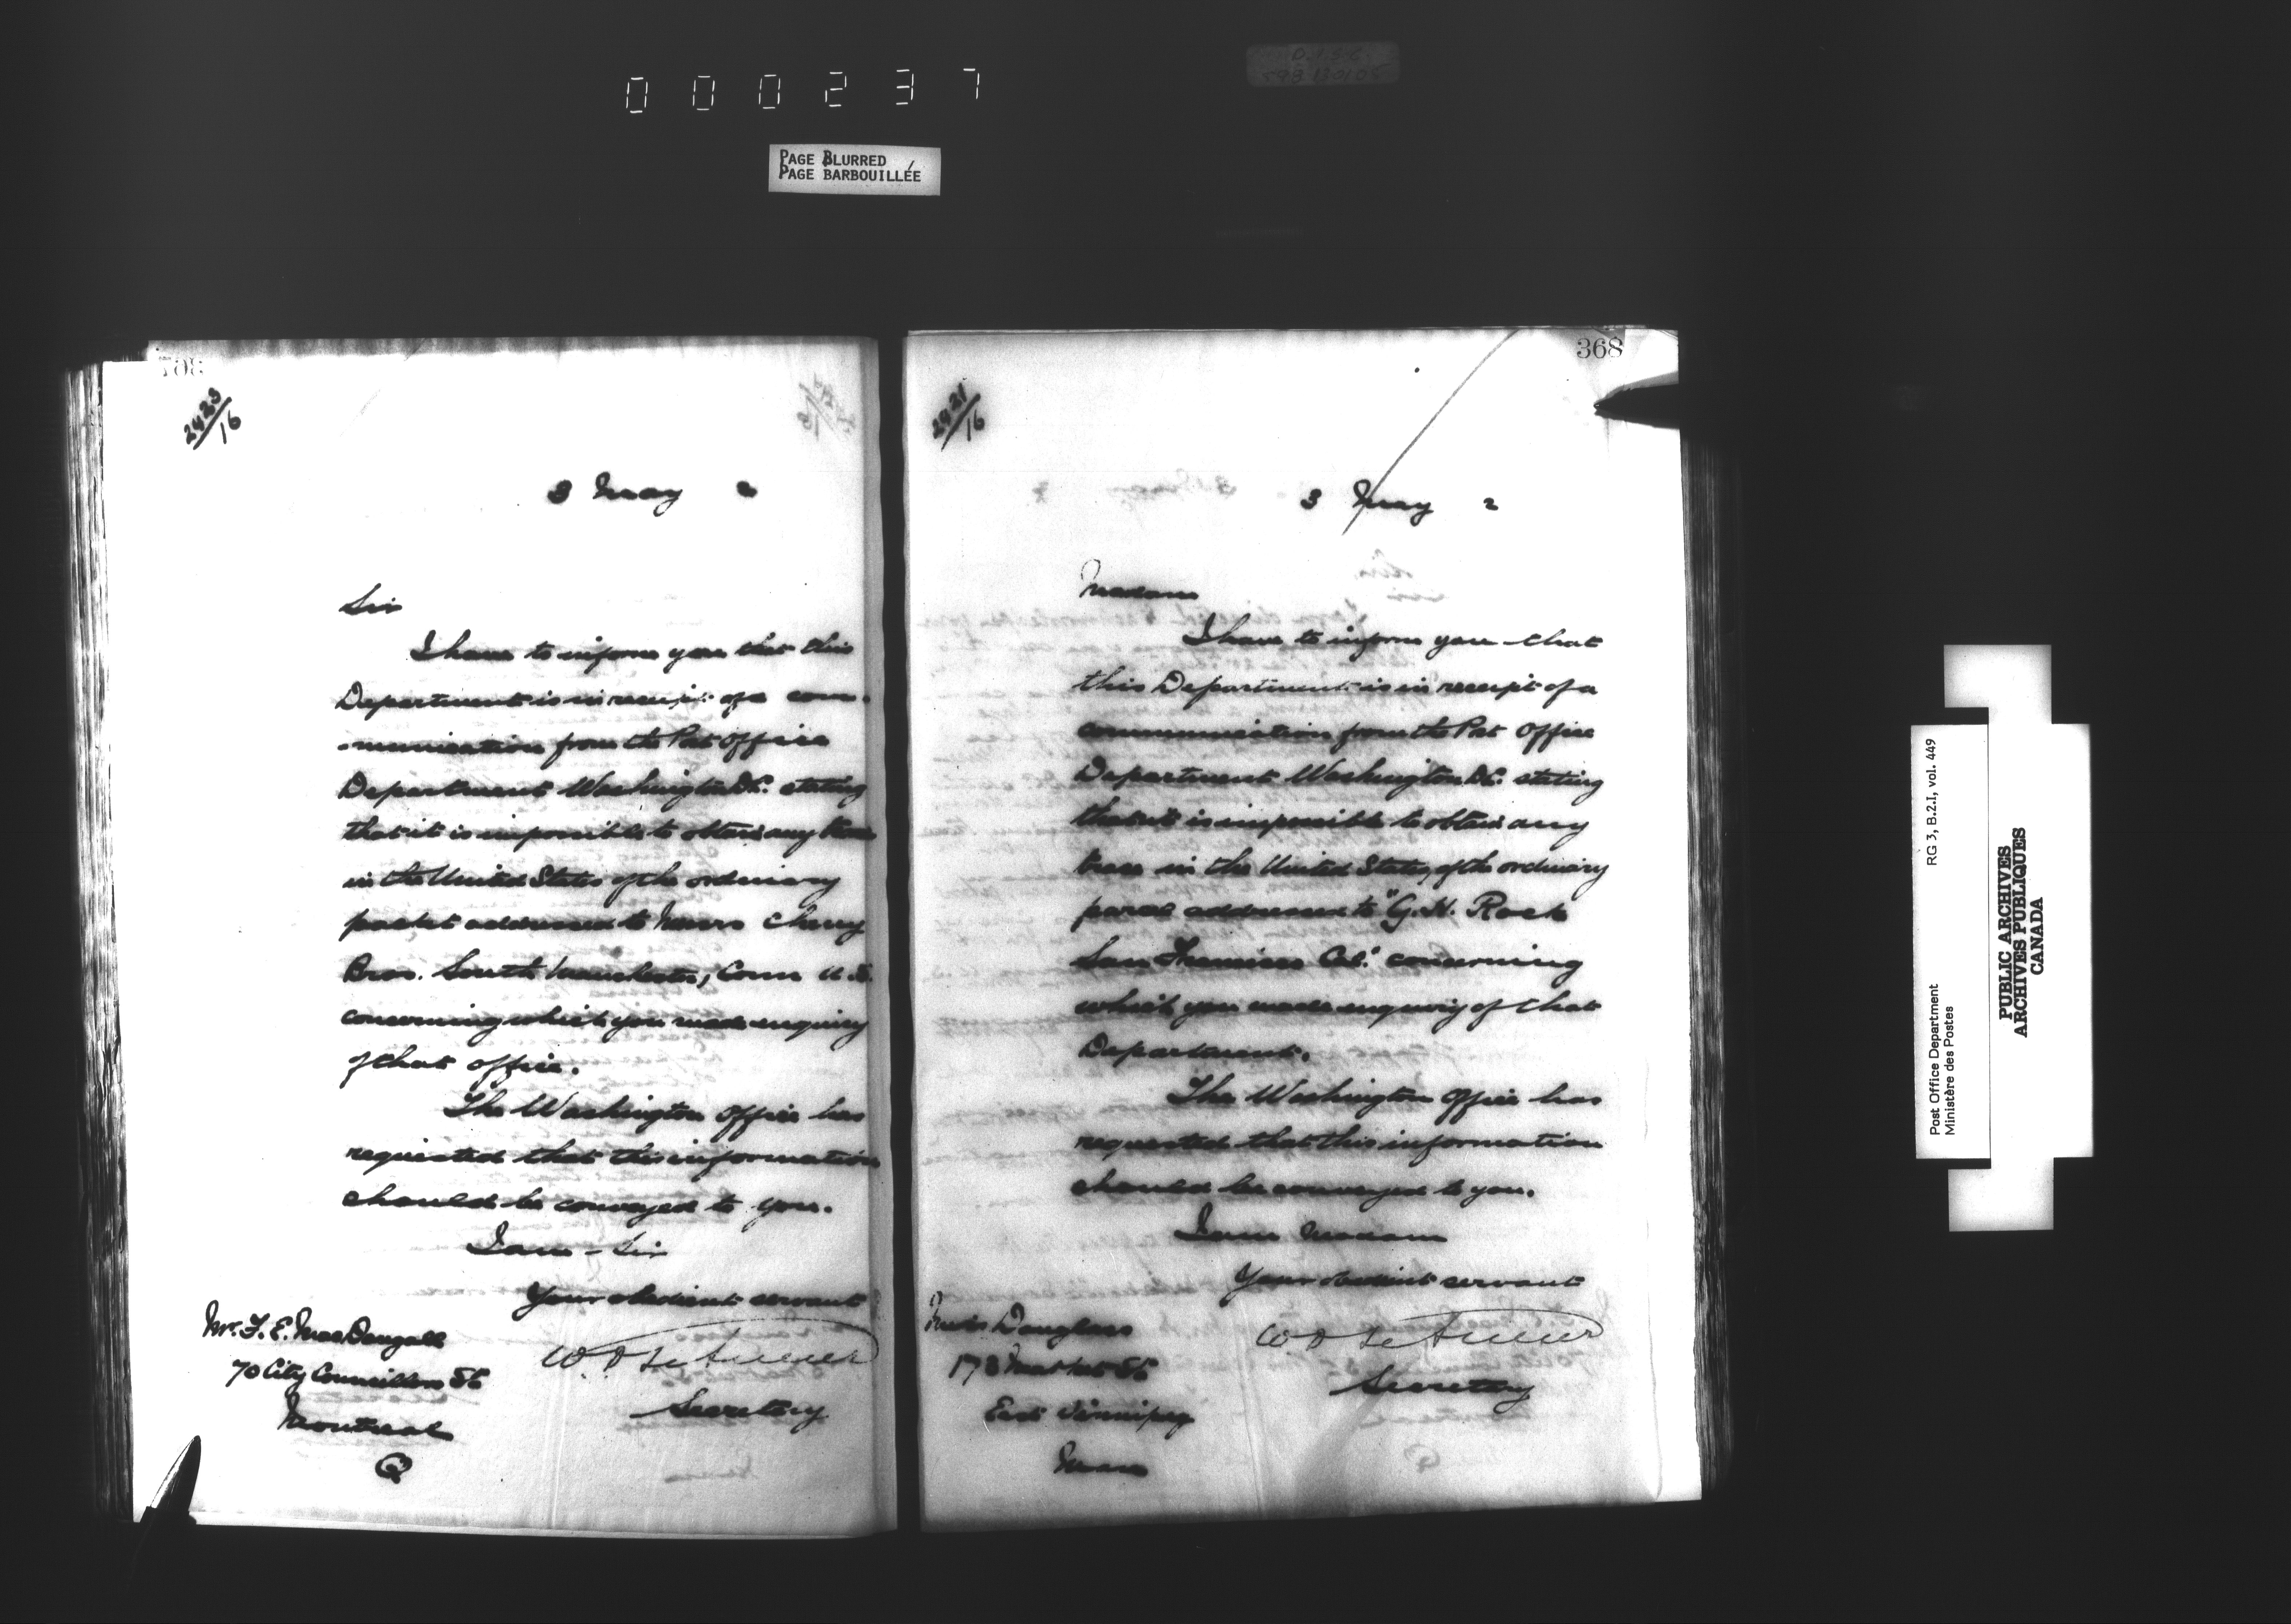 000237
PAGE BLURRED
PAGE BARBOUILLÉE
2423/16
3 May 2
Sir
I have to inform you that this
Department is in receipt of a com-
-munication from the Post Office
Department Washington D.C. stating
that it is impossible to obtain any trace
in the United States of the ordinary
packet addressed to Messrs Cheney
Bros. South Manchester, Conn U.S.
concerning which you made enquiry
of that office.
The Washington Office has
requested that this information
should be conveyed to you.
I am - Sir
Your obedient servant
Secretary
Mr. F. E. MacDougall
70 City Councillors St
Montreal
Q
368
2421/16
3 May 2
Madam
I have to inform you that
this Department is in receipt of a
communication from the Post Office
Department Washington D.C. stating
that it is impossible to obtain any
trace in the United States, of the ordinary
parcel addressed to "G. H. Rock
San Francisco Cal." concerning
which you made enquiry of that
Department.
The Washington Office has
requested that this information
should be conveyed to you.
I am Madam
Your obedient servant
Secretary
Douglass
178 Market St
East Winnipeg
Man
Post Office Department
Ministère des Postes
RG 3, B.2.I, vol. 449
PUBLIC ARCHIVES
ARCHIVES PUBLIQUES
CANADA